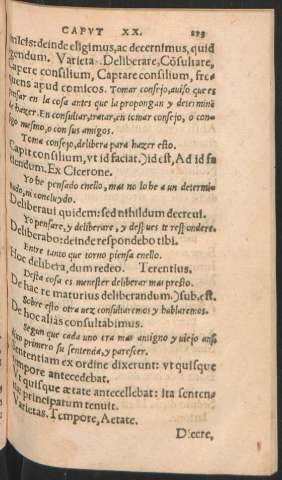 CAPVT XX.
amicis: deinde eligimus, ac decernimus, quid
gendum. Varieta. Deliberare, Cõsultare,
Capere consilium, Captare consilium, fre-
quens apud comicos. Tomar consejo, auiso que es
pensar en la cosa antes que la propongan y determinẽ
de hazer. En consultar, tratar, en tomar consejo, o con-
sigo mesmo, o con sus amigos.
Toma consejo, delibera para hazer esto.
Capit consilium, vt id faciat.) id est, Ad id fa
ciendum. Ex Cicerone.
Yo he pensado enello, mas no lo he a un determi-
nado, ni concluydo.
Deliberaui quidem: sed nihil dum decreui.
Yo pensare, y deliberare, y despues te respondere.
Deliberabo: deinde respondebo tibi.
Entre tanto que torno piensa enello.
Hoc delibera, dum redeo. Terentius.
Desta cosa es menester deliberar mas presto.
De hac re maturius deliberandum.) sub. est.
Sobre esto otra uez consultaremos y hablaremos.
De hoc aliàs consultabimus.
Segun que cada uno era mas antiguo y uiejo ansi
dixo primero su sentencia, y parescer.
Sententiam ex ordine dixerunt: vt quisque
tempore antecedebat.
Vt quisque ætate antecellebat: ita senten-
tiæ principatum tenuit.
Varietas. Tempore, Aetate.
Dicere,